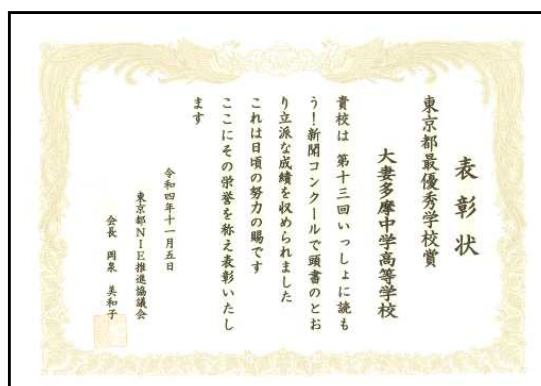 表彰状
東京都最優秀学校賞
大妻多摩中学高等学校
貴校は 第十三回いっしょに読も
う!新聞コンクールで頭書のとお
り立派な成績を収められました
これは日頃の努力の賜です
ここにその栄誉を称え表彰いたし
ます
令和四年十一月五日
東京都NIE推進協議会
会長 岡泉 美和子